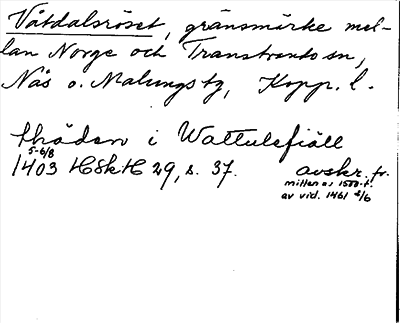 Våtdalsröset, gränsmärke mel-
lan Norge och Transtrands sn,
Nås o. Malungs tg, Kopp. l.
thädan i Wattulefiäll
5-6/8
1403 HSkH 29, s. 37. avskr. fr.
mitten av 1500-t.
av vid. 1461 2/6